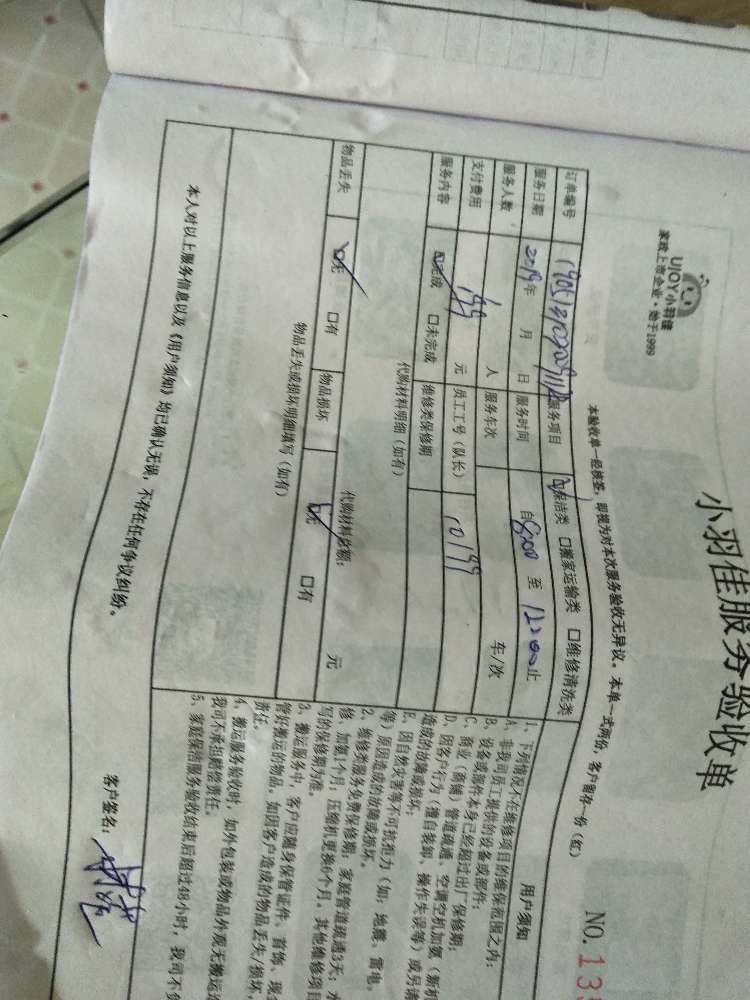 小羽佳服务验收单
UJOY小羽佳
家政上市企业·始于1999
NO.13
本验收单一经核签，即视为对本次服务验收无异议。本单一式两份，客户留存一份（红）
订单编号 服务项目 保洁类 口搬家运输类 口维修清洗类
服务日期 2019年 月 日 服务时间 自8:00 至 12:00止
服务人数 人 服务车次 车/次
支付费用 199 元 员工工号（队长） 10199
服务内容 完成 口未完成 维修类保修期
代购材料明细（如有）
代购材料总额： 元
物品丢失 无 口有 物品损坏 无 口有
物品丢失或损坏明细填写（如有）
本人对以上服务信息以及《用户须知》均已确认无误，不存在任何争议纠纷。
用户须知
1、下列情况不在维修项目的维保范围之内：
A、非我司员工提供的设备或部件；
B、设备或部件本身已经超过出厂保修期；
C、商业（商铺）管道疏通、空调空机加氨（新机
D、因客户行为（擅自装卸、操作失误等）或另请
造成的故障或损坏；
E、因自然灾害等不可抗拒力（如：地震、雷电、
等）原因造成的故障或损坏。
2、维修类服务免费保修期：家庭管道疏通3天；水
修、加氨1个月；压缩机更换6个月。其他维修项目
写的保修期为准。
3、搬运服务中，客户应随身保管证件、首饰、现金
管好搬运的物品。如因客户造成的物品丢失/损坏，
责任。
4、搬运服务验收时，如外包装或物品外观无搬运造
我司不承担赔偿责任。
5、家庭保洁服务验收结束后超过48小时，我司不负
客户签名：